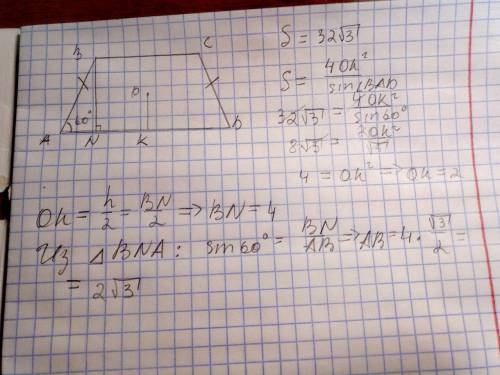 B C
O
60°
A N K D
S = 32√3
S = 4OK² / sin∠BAD
32√3 = 4OK² / sin60°
8√3 = 2OK² / √3
4 = OK² => OK = 2
OK = h/2 = BN/2 => BN = 4
Из △BNA: sin60° = BN/AB => AB = 4 · √3/2 =
= 2√3